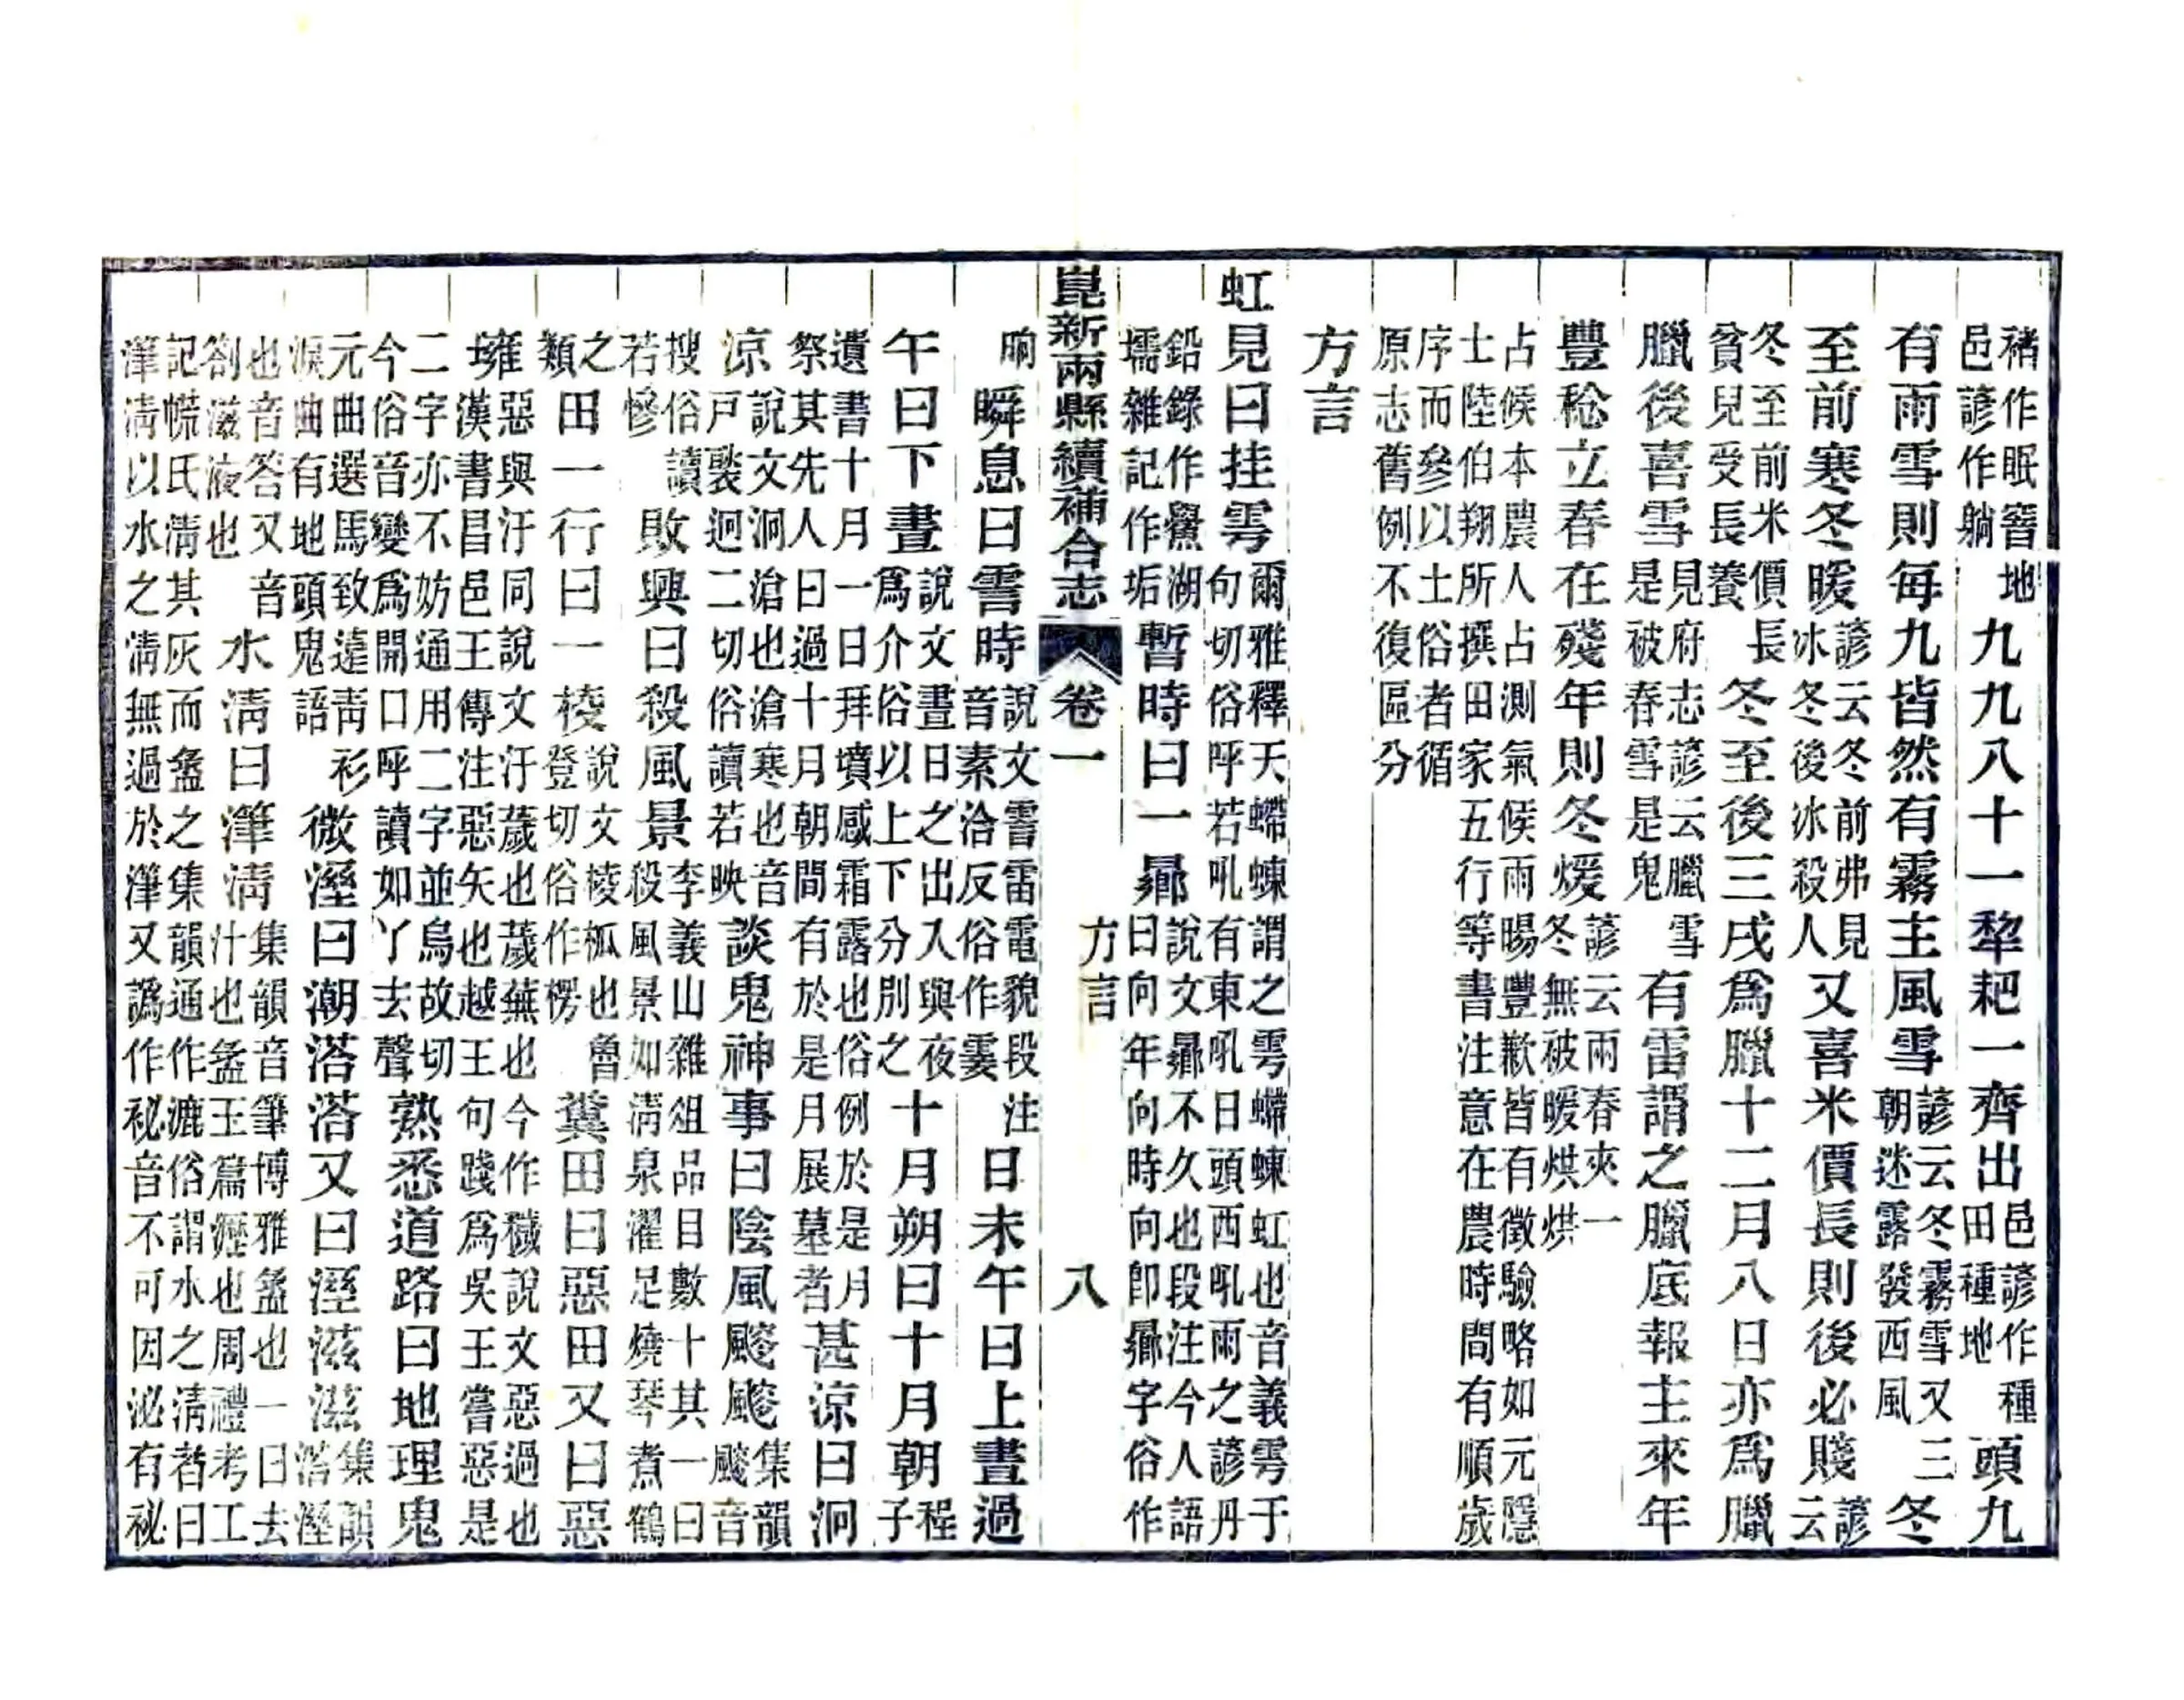 褚作眠窖地邑諺作躺九九八十一犂耙一齊出邑諺作種田種地頭九
有雨雪則每九皆然有霧主風雪諺云冬霧雪又三朝迷露發西風冬
至前寒冬暖諺云冬前弗見冰冬後冰殺人又喜米價長則後必賤諺云
冬至前米價長貧兒受長養冬至後三戌爲臘十二月八日亦爲臘
臘後喜雪見府志諺云臘雪是被春雪是鬼有雷謂之臘底報主來年
豐稔立春在殘年則冬煖諺云雨春夾一冬無被暖烘烘
占候本農人占測氣候雨暘豐歉皆有徵驗略如元隱士陸伯翔所撰田家五行等書注意在農時間有順歲
序而參以土俗者循原志舊例不復區分
方言
虹見曰挂雩爾雅釋天蝃蝀謂之雩蝃蝀虹也音義雩于句切俗呼若吼有東吼日頭西吼雨之諺丹
鉛錄作鱟湖壖雜記作垢暫時曰一曏說文曏不久也段注今人語曰向年向時向卽曏字俗作
崑新兩縣續補合志 卷一 方言 八
晌瞬息曰霅時說文霅雷電貌段注音素洽反俗作霎日未午曰上晝過
午曰下晝說文晝日之出入與夜爲介俗以上下分別之十月朔曰十月朝程子
遺書十月一日拜墳感霜露也俗例於是月祭其先人曰過十月朝間有於是月展墓者甚涼曰泂
涼說文泂滄也滄寒也音戸褧迥二切俗讀若映談鬼神事曰陰風颼颼集韻颼音
搜俗讀若慘敗興曰殺風景李義山雜俎品目數十其一曰殺風景如淸泉濯足燒琴煮鶴
之類田一行曰一棱說文棱柧也魯登切俗作楞糞田曰惡田又曰惡
壅惡與汙同說文汙薉也薉蕪也今作穢說文惡過也漢書昌邑王傳注惡矢也越王句踐爲吳王嘗惡是
二字亦不妨通用二字並烏故切今俗音變爲開口呼讀如丫去聲熟悉道路曰地理鬼
元曲選馬致遠靑衫淚曲有地頭鬼語微溼曰潮溚溚又曰溼滋滋集韻溚溼
也音答又音劄滋液也水淸曰潷淸集韻音筆博雅盝也一曰去汁也盝玉篇瀝也周禮考工
記㡛氏淸其灰而盝之集韻通作漉俗謂水之淸者曰潷淸以水之淸無過於潷又譌作祕音不可因泌有祕